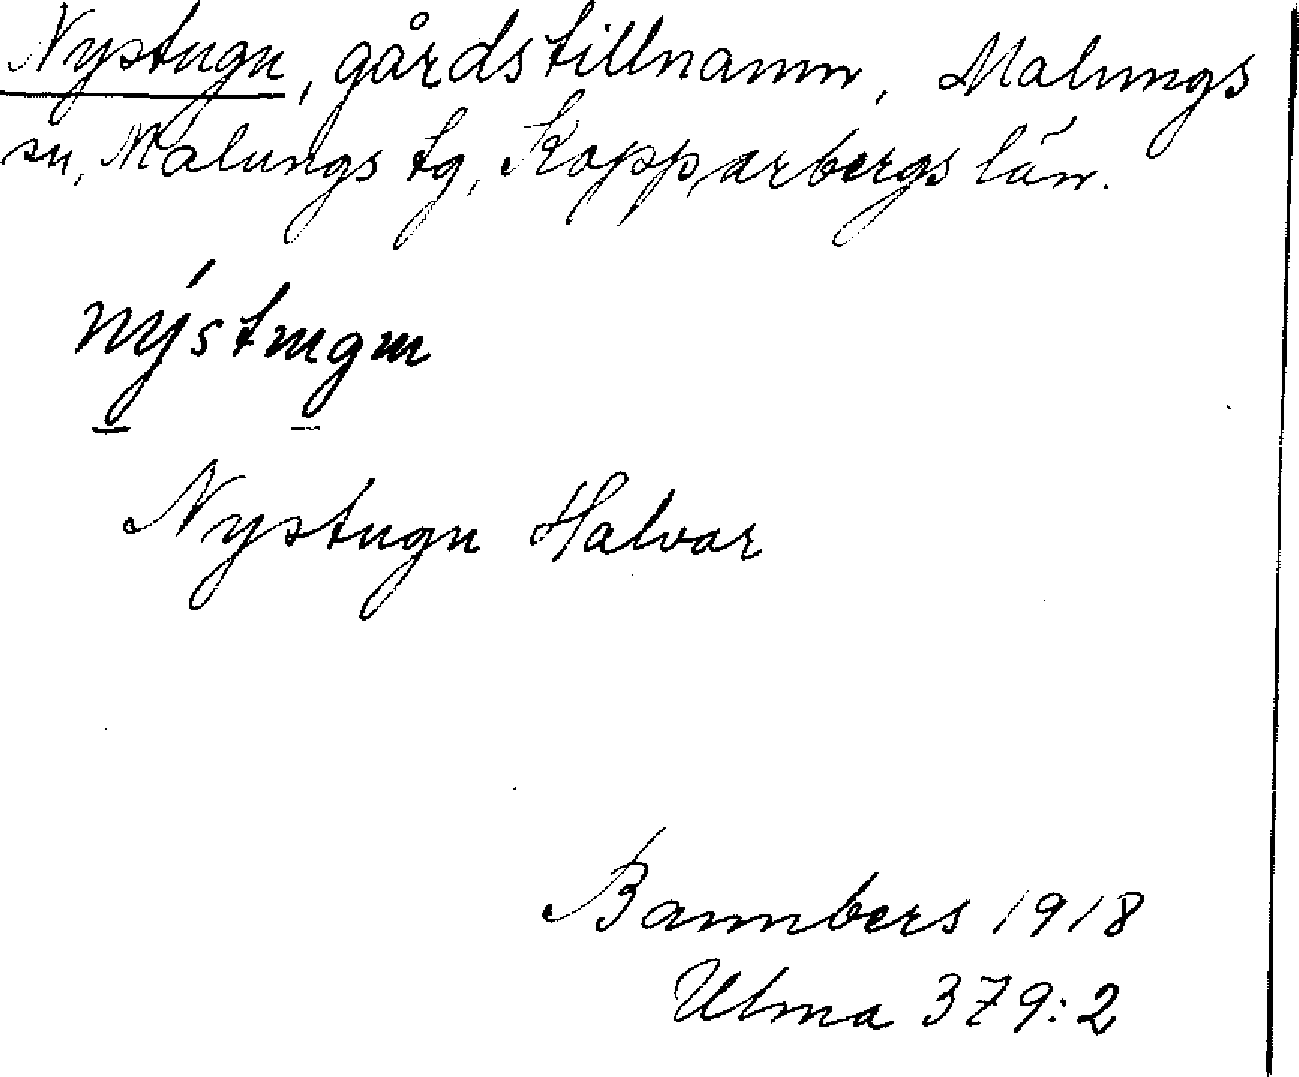 Nystugu, gårdstillnamn, Malungs
sn, Malungs tg, Kopparbergs län.
nýstugu
Nystugu Halvar
Bannbers 1918
Ulma 379:2